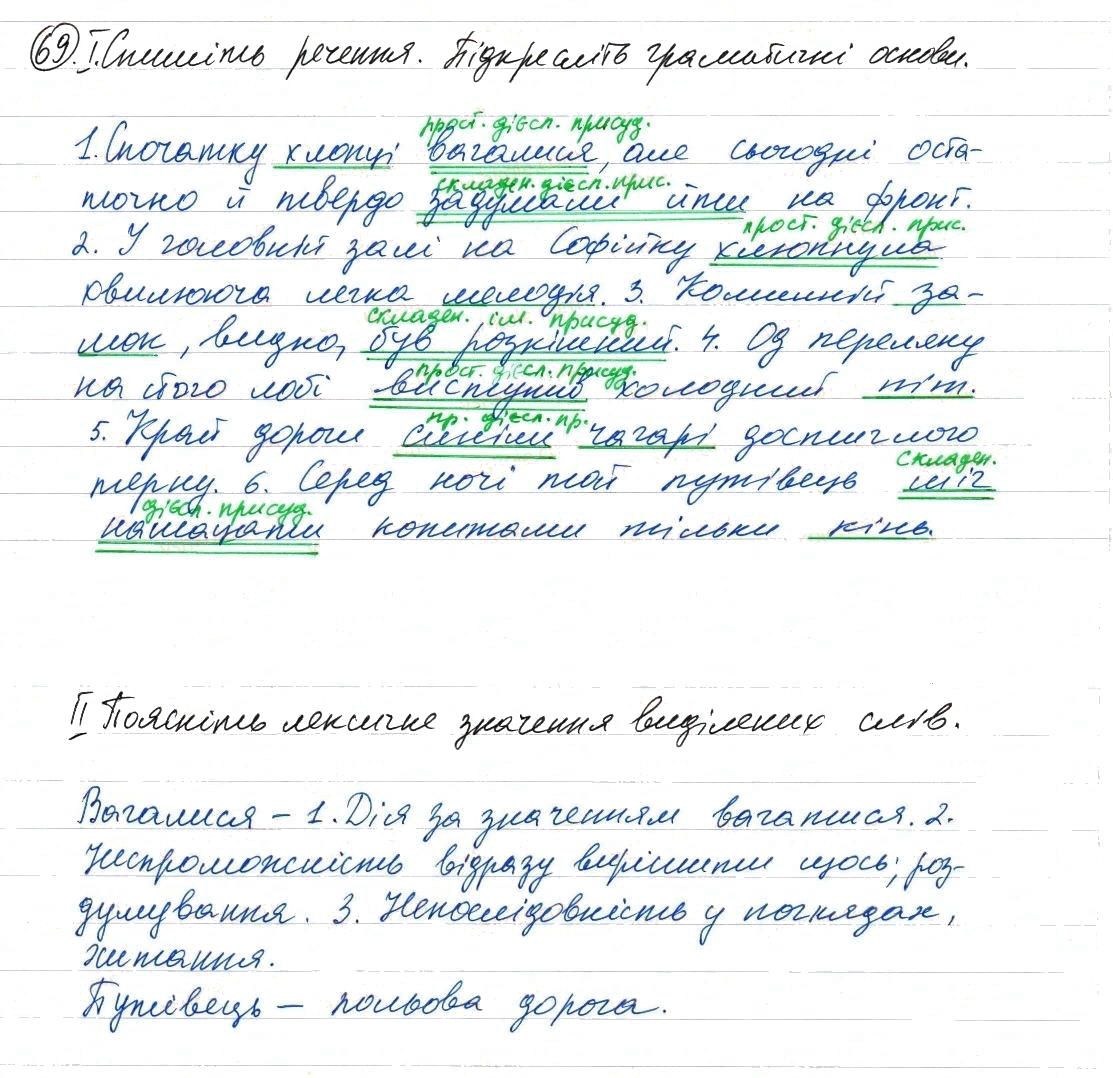 69. I. Спишіть речення. Підкресліть граматичні основи.
прост. дієсл. присуд.
1. Спочатку хлопці вагалися, але сьогодні оста-
складен. дієсл. прис.
точно й твердо задумали йти на фронт.
прост. дієсл. прис.
2. У головній залі на Софійку хлюпнула
хвилююча легка мелодія. 3. Коминній за-
складен. ім. присуд.
мок, видно, був розкішний. 4. Од переляку
прост. дієсл. присуд.
на його лобі виступив холодний піт.
пр. дієсл. пр.
5. Край дороги синіли чагарі достиглого
складен.
терну. 6. Серед ночі той путівець міг
дієсл. присуд.
намацати копитами тільки кінь.
II Поясніть лексичне значення виділених слів.
Вагалися – 1. Дія за значенням вагатися. 2.
Неспроможність відразу вирішити щось; роз-
думування. 3. Непослідовність у поглядах,
хитання.
Путівець – польова дорога.